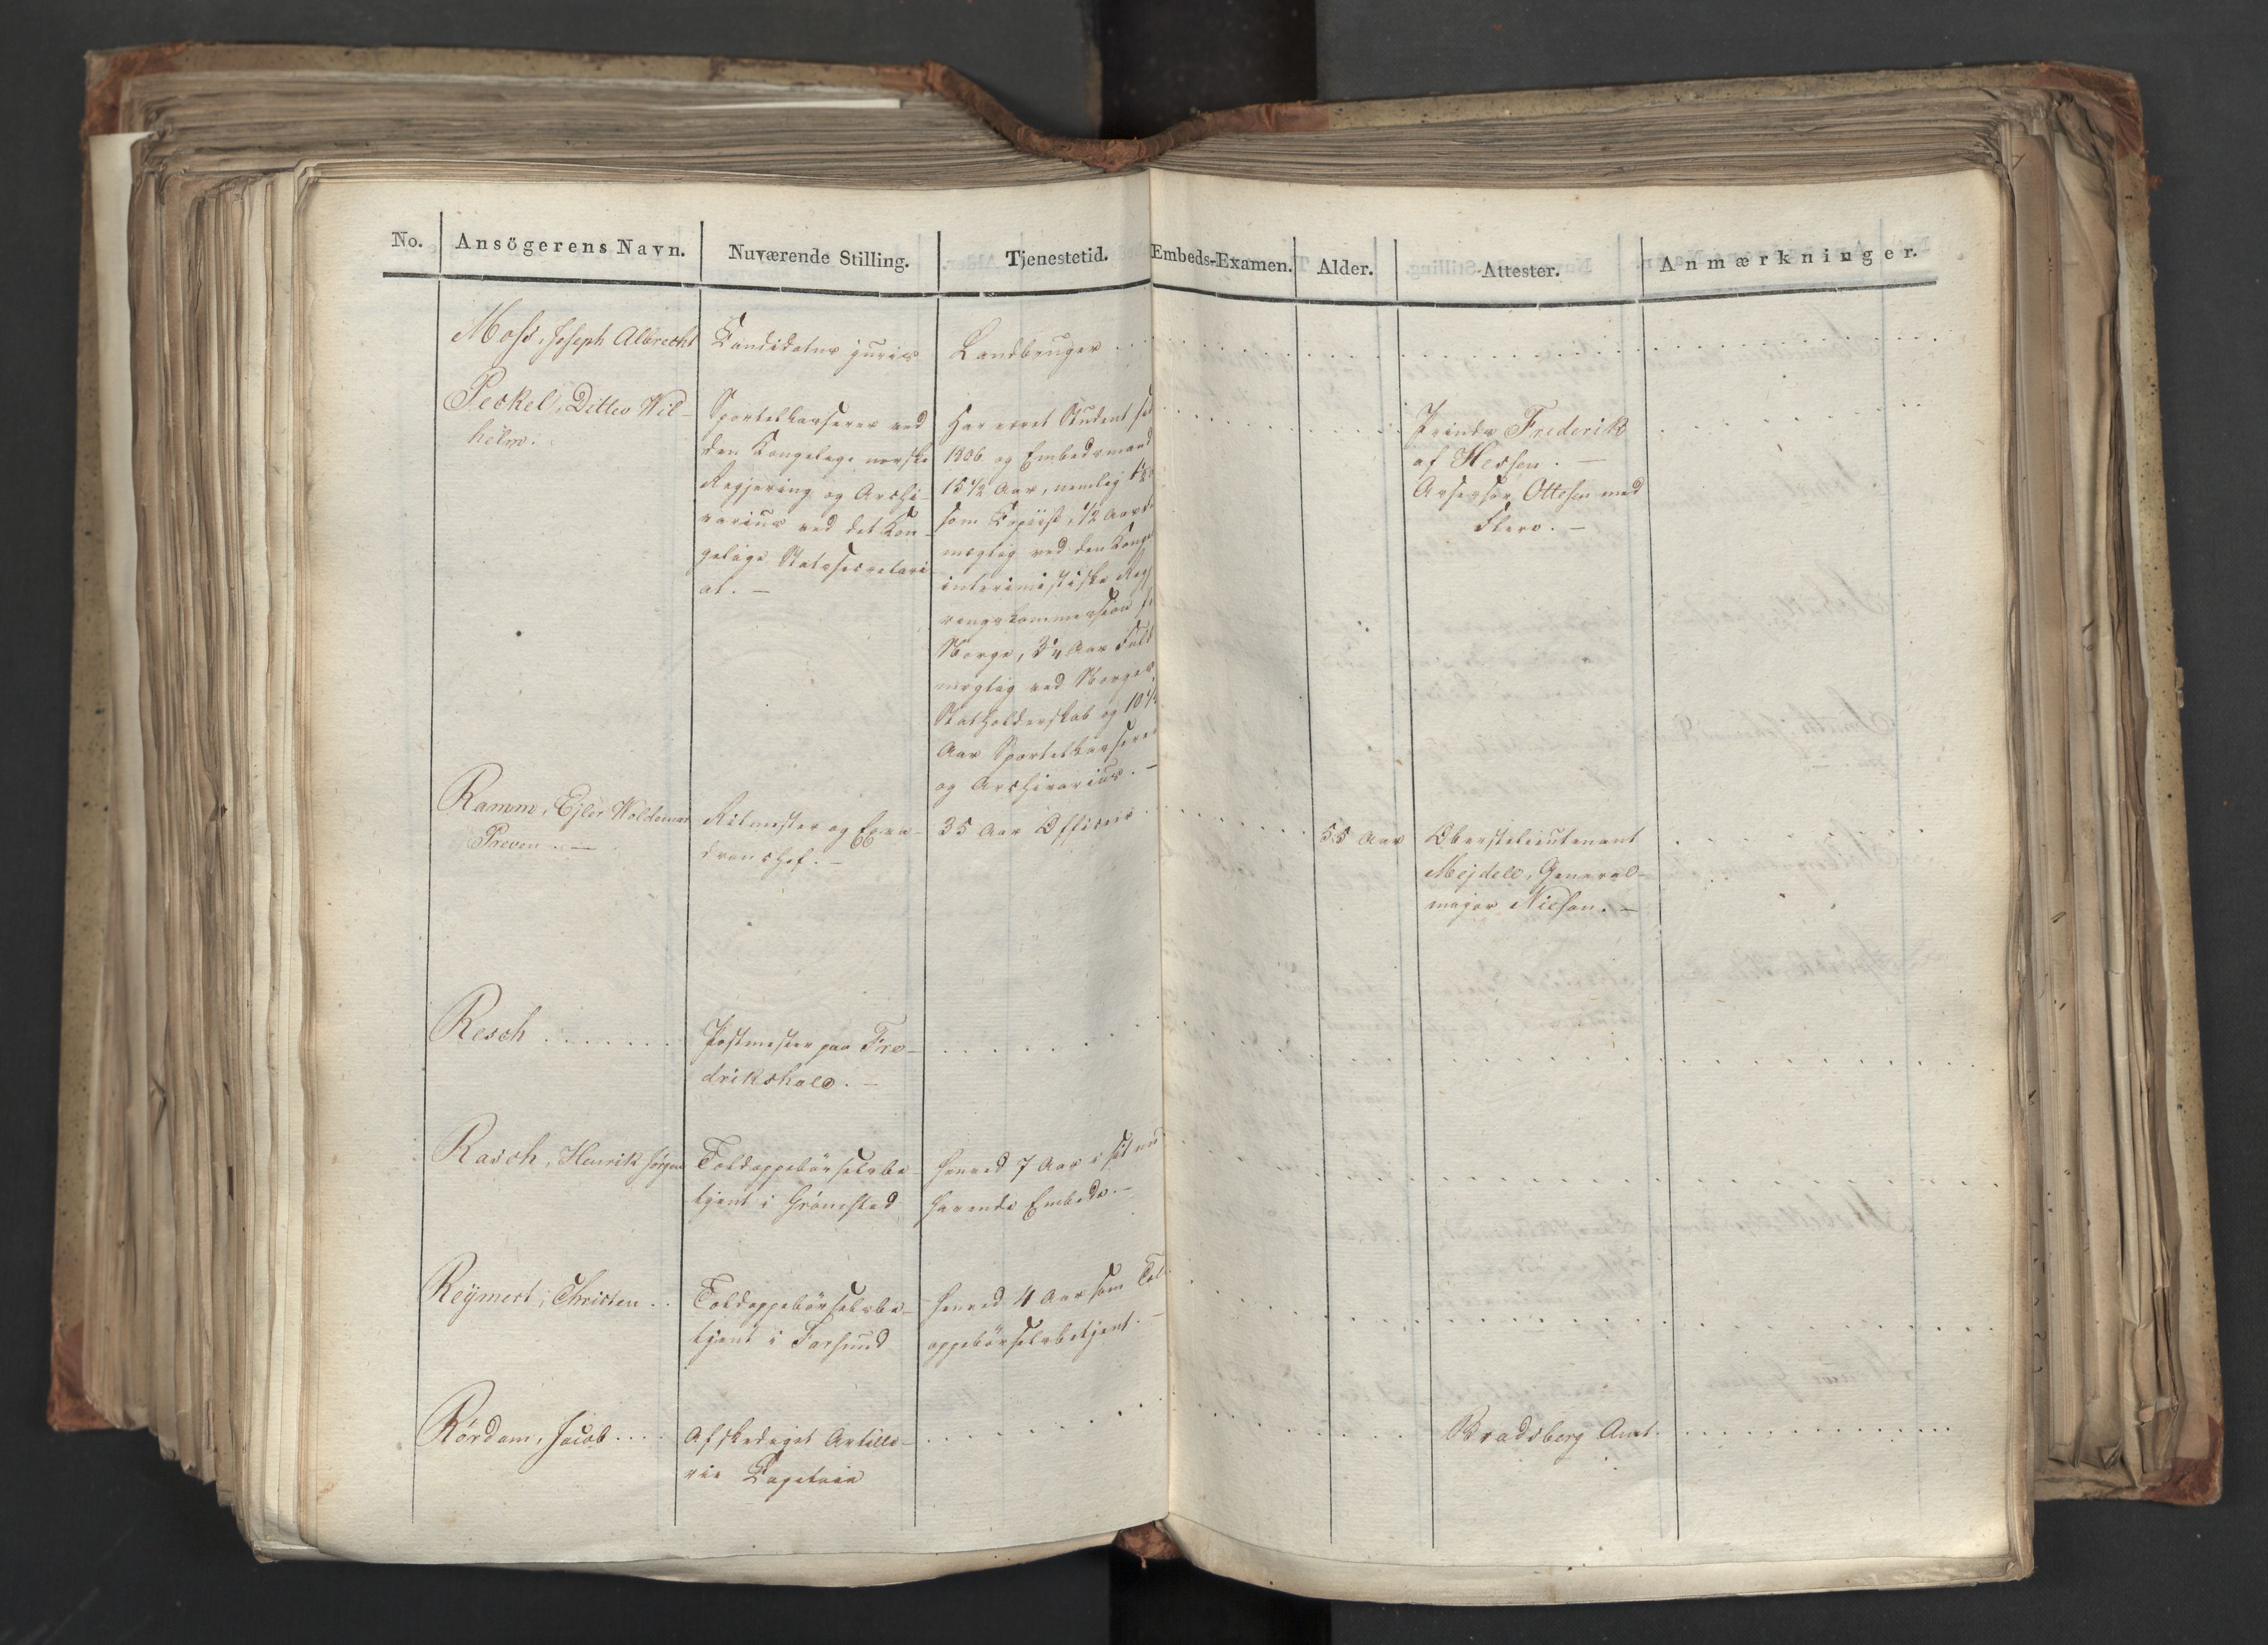 No. Ansögerens Navn. Nuværende Stilling. Tjenestetid. Embeds-Examen. Alder. Attester. Anmærkninger.
Moss, Joseph Albrecht
Candidatus juris
Landbruger
Peckel, Ditlev Wil-
helm.
Sportelkasserer ved
den Kongelige norske
Regjering og Archi-
varius ved det Kon-
gelige Statssecretari
at. —
Har været Student sid
1806 og Embedsmand
15 1/2 Aar, nemlig
som Copiist, 1/2 Aar
mægtig ved den Konge
interimistiske Regj
ringskommission
Norge, 3 Aar Fuld
mægtig ved Norges
Statholderskab og 10 1/2
Aar Sportelkasserer
og Archivarius. —
Prinds Frederik
af Hessen. —
Assessor Ottesen med
Flere. —
Ramm, Ejler Woldemar
Preven. —
Ritmester og Esqva-
dronschef. —
35 Aar Officeer
55 Aar
Oberstelieutenant
Mejdell, General-
major Nielsen. —
Resch
Postmester paa Fre-
drikshald. —
Rasch, Henrik Jørgen
Toldoppebörselsbe-
tjent i Grömstad
henved 7 Aar i sit nu
havende Embede. —
Reÿmert, Christen
Toldoppebörselsbe-
tjent i Farsund
henved 4 Aar som Tol
oppebörselsbetjent. —
Rördam, Jacob
Afskediget Artille-
rie Capitain
Bradsberg Amt.